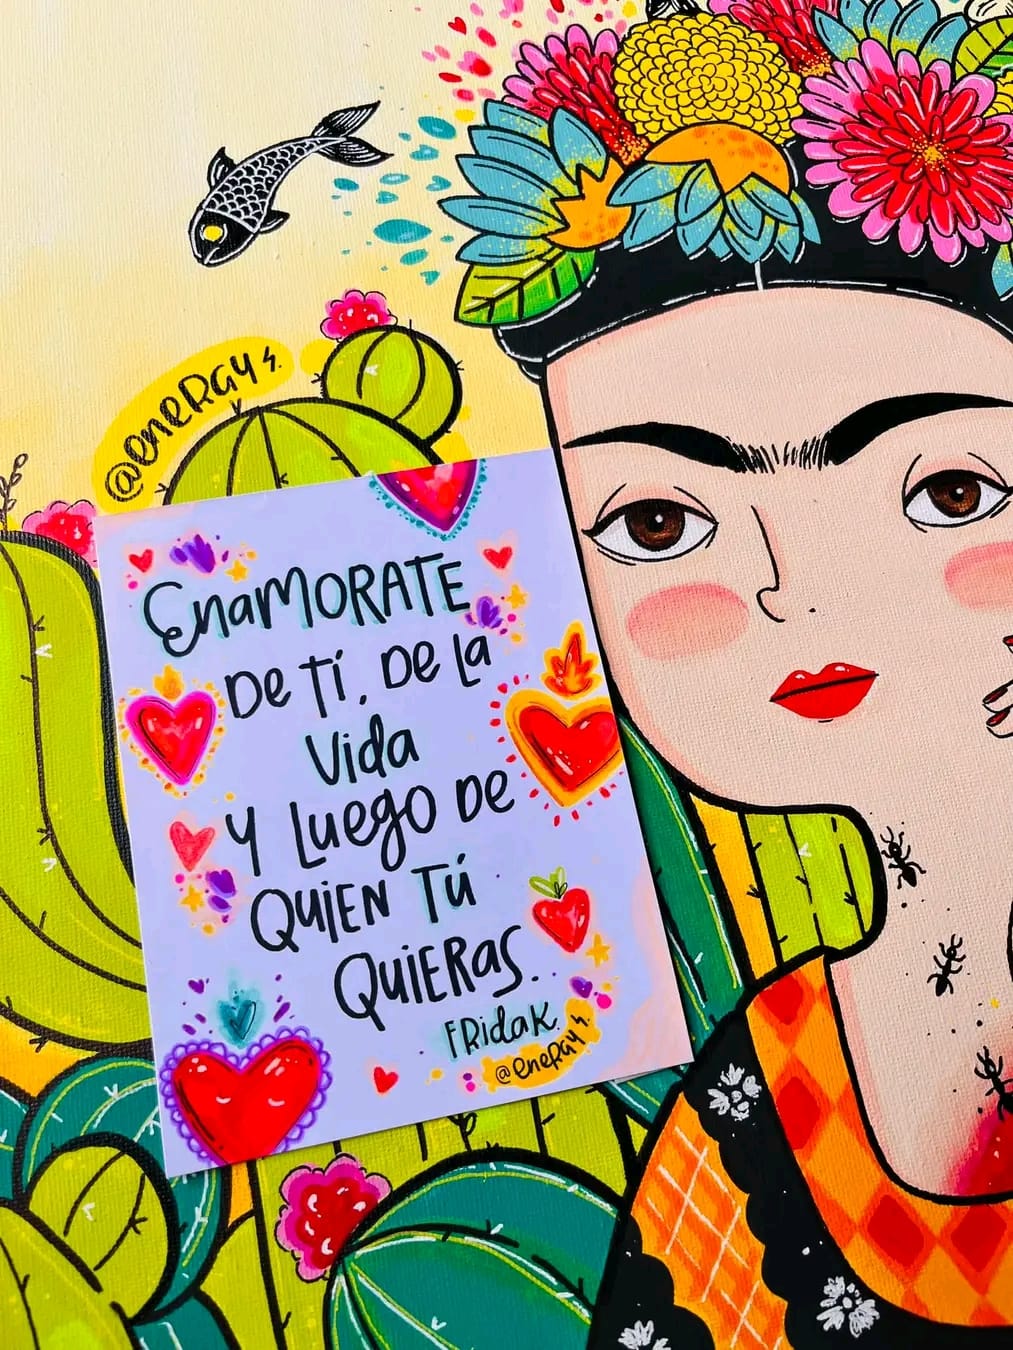 @eneRGy
EnamORATE
De Tí, De La
Vida
y Luego De
QUiEN Tú
QUiERas.
FRidaK.
@eneRGy